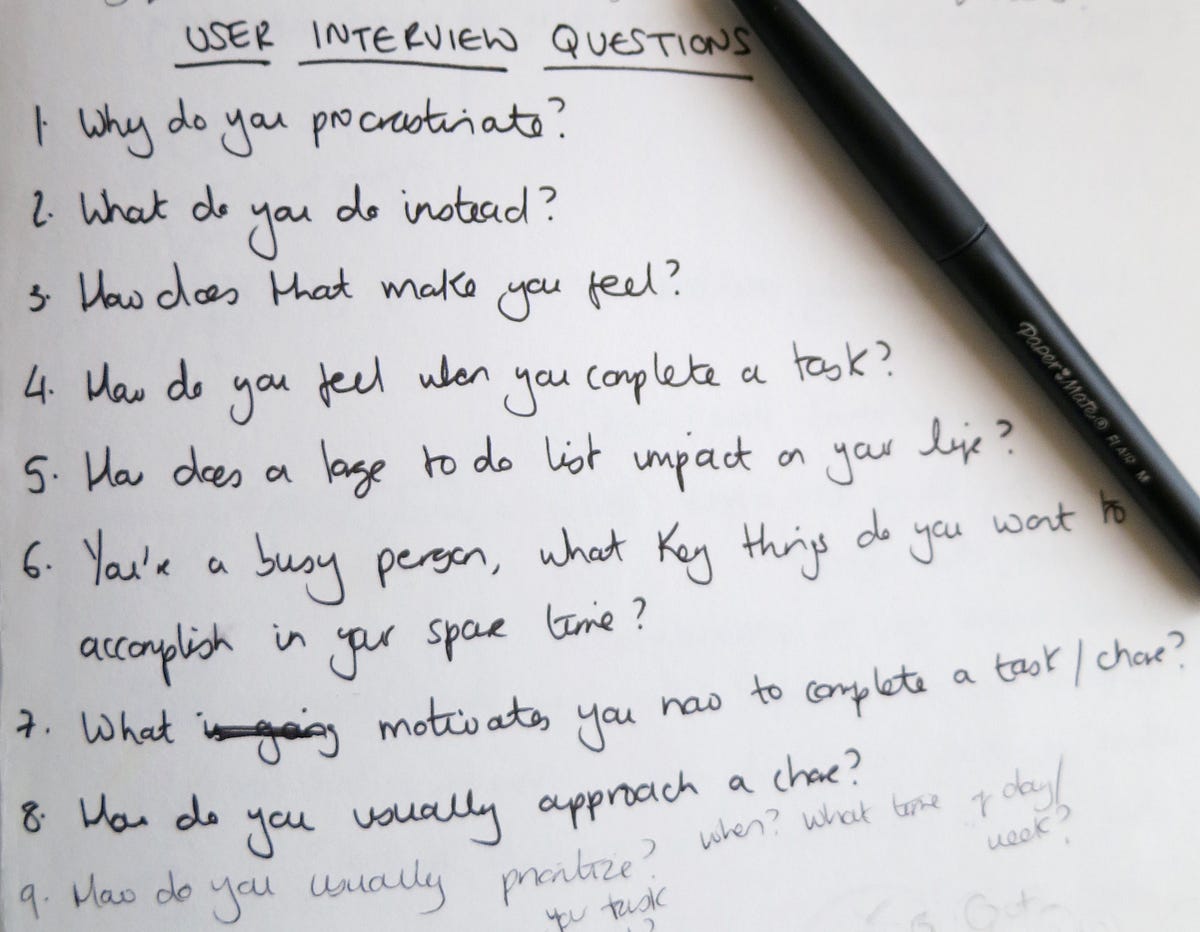 USER INTERVIEW QUESTIONS
1. Why do you procrastinate?
2. What do you do instead?
3. How does that make you feel?
4. How do you feel when you complete a task?
5. How does a large to do list impact on your life?
6. You're a busy person, what key things do you want to
accomplish in your spare time?
7. What is going motivates you now to complete a task / chore?
8. How do you usually approach a chore?
when? what time of day/
week?
9. How do you usually prioritize?
your task
?
Paper Mate® FLAIR M